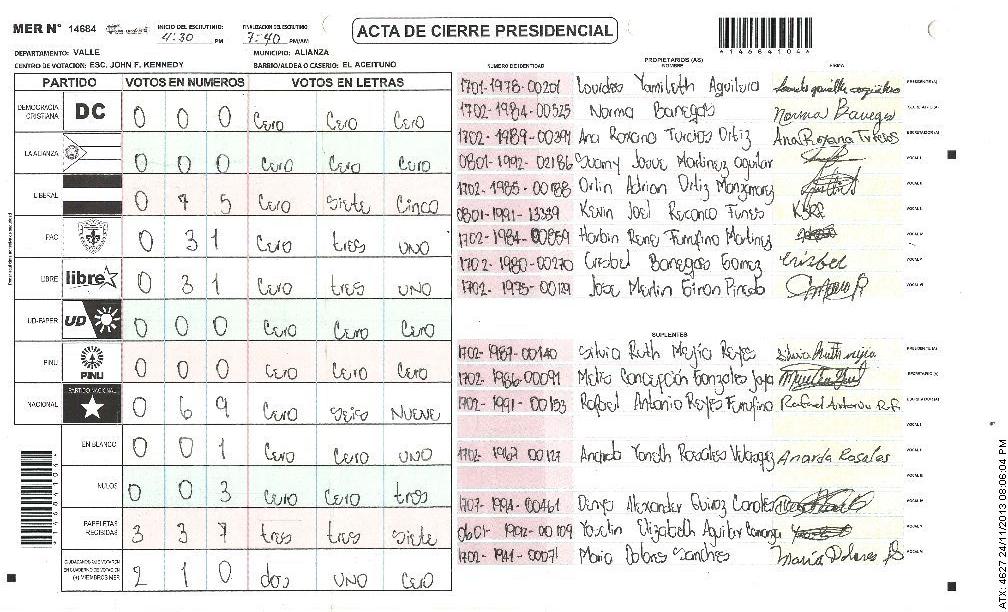 MER N° 14684 INICIO DEL ESCRUTINIO: 4:30 PM FINALIZACION DEL ESCRUTINIO: 7:40 PM/AM
ACTA DE CIERRE PRESIDENCIAL
DEPARTAMENTO: VALLE MUNICIPIO: ALIANZA
CENTRO DE VOTACION: ESC. JOHN F. KENNEDY BARRIO/ALDEA O CASERIO: EL ACEITUNO
PARTIDO VOTOS EN NUMEROS VOTOS EN LETRAS
DEMOCRACIA CRISTIANA DC 0 0 0 Cero Cero Cero
LA ALIANZA 0 0 0 Cero Cero Cero
LIBERAL 0 7 5 Cero Siete Cinco
PAC 0 31 Cero tres uno
LIBRE libre 0 31 Cero tres uno
UD-FAPER UD 0 0 0 Cero Cero Cero
PINU PINU 0 0 0 Cero Cero Cero
NACIONAL PARTIDO NACIONAL 0 6 9 Cero Seiso Nueve
EN BLANCO 0 0 1 Cero Cero uno
NULOS 0 0 3 Cero Cero tres
PAPELETAS RECIBIDAS 3 3 7 tres tres siete
CIUDADANOS QUE VOTARON EN CUADERNO DE VOTACION (+) MIEMBROS MER 2 1 0 dos uno Cero
PROPIETARIOS (AS)
NUMERO DE IDENTIDAD NOMBRE FIRMA
1701-1978-00201 Lourdes Yamileth Aguilera PRESIDENTE(A)
1702-1984-00525 Norma Banegas Norma Banegas SECRETARIO(A)
1702-1989-00391 Ana Roxana Turcios Ortiz Ana Roxana Turcios ESCRUTADOR(A)
0801-1992-02186 Josue Martinez aguilar VOCAL I
Orlin Adrian Ortiz VOCAL II
0801-1991-13339 Kevin Joel Funes VOCAL III
1702-1984-00859 Rene Martinez VOCAL IV
1702-1980-00270 Crisbel Banegas Gomez Crisbel VOCAL V
1702-1975-00129 Jose Merlin Giron Pineda VOCAL VI
SUPLENTES
1702-1987-00140 Silvia Ruth Mejia Reyes Silvia Ruth mejia PRESIDENTE (A)
1702-1986-00091 Concepción Gonzales SECRETARIO (A)
1702-1991-00153 Rafael Antonio Reyes Rafael Antonio R.F. ESCRUTADOR(A)
VOCAL I
1702-1967-00127 Yaneth Rosales Velasquez Ananda Rosales VOCAL II
VOCAL III
1707-1994-00461 Alexander VOCAL IV
Elizabeth Aguilar VOCAL V
1702-1941-00071 Maria Dolores Maria Dolores VOCAL VI
14684104
ATX: 4627 24/11/2013 08:06:04 PM